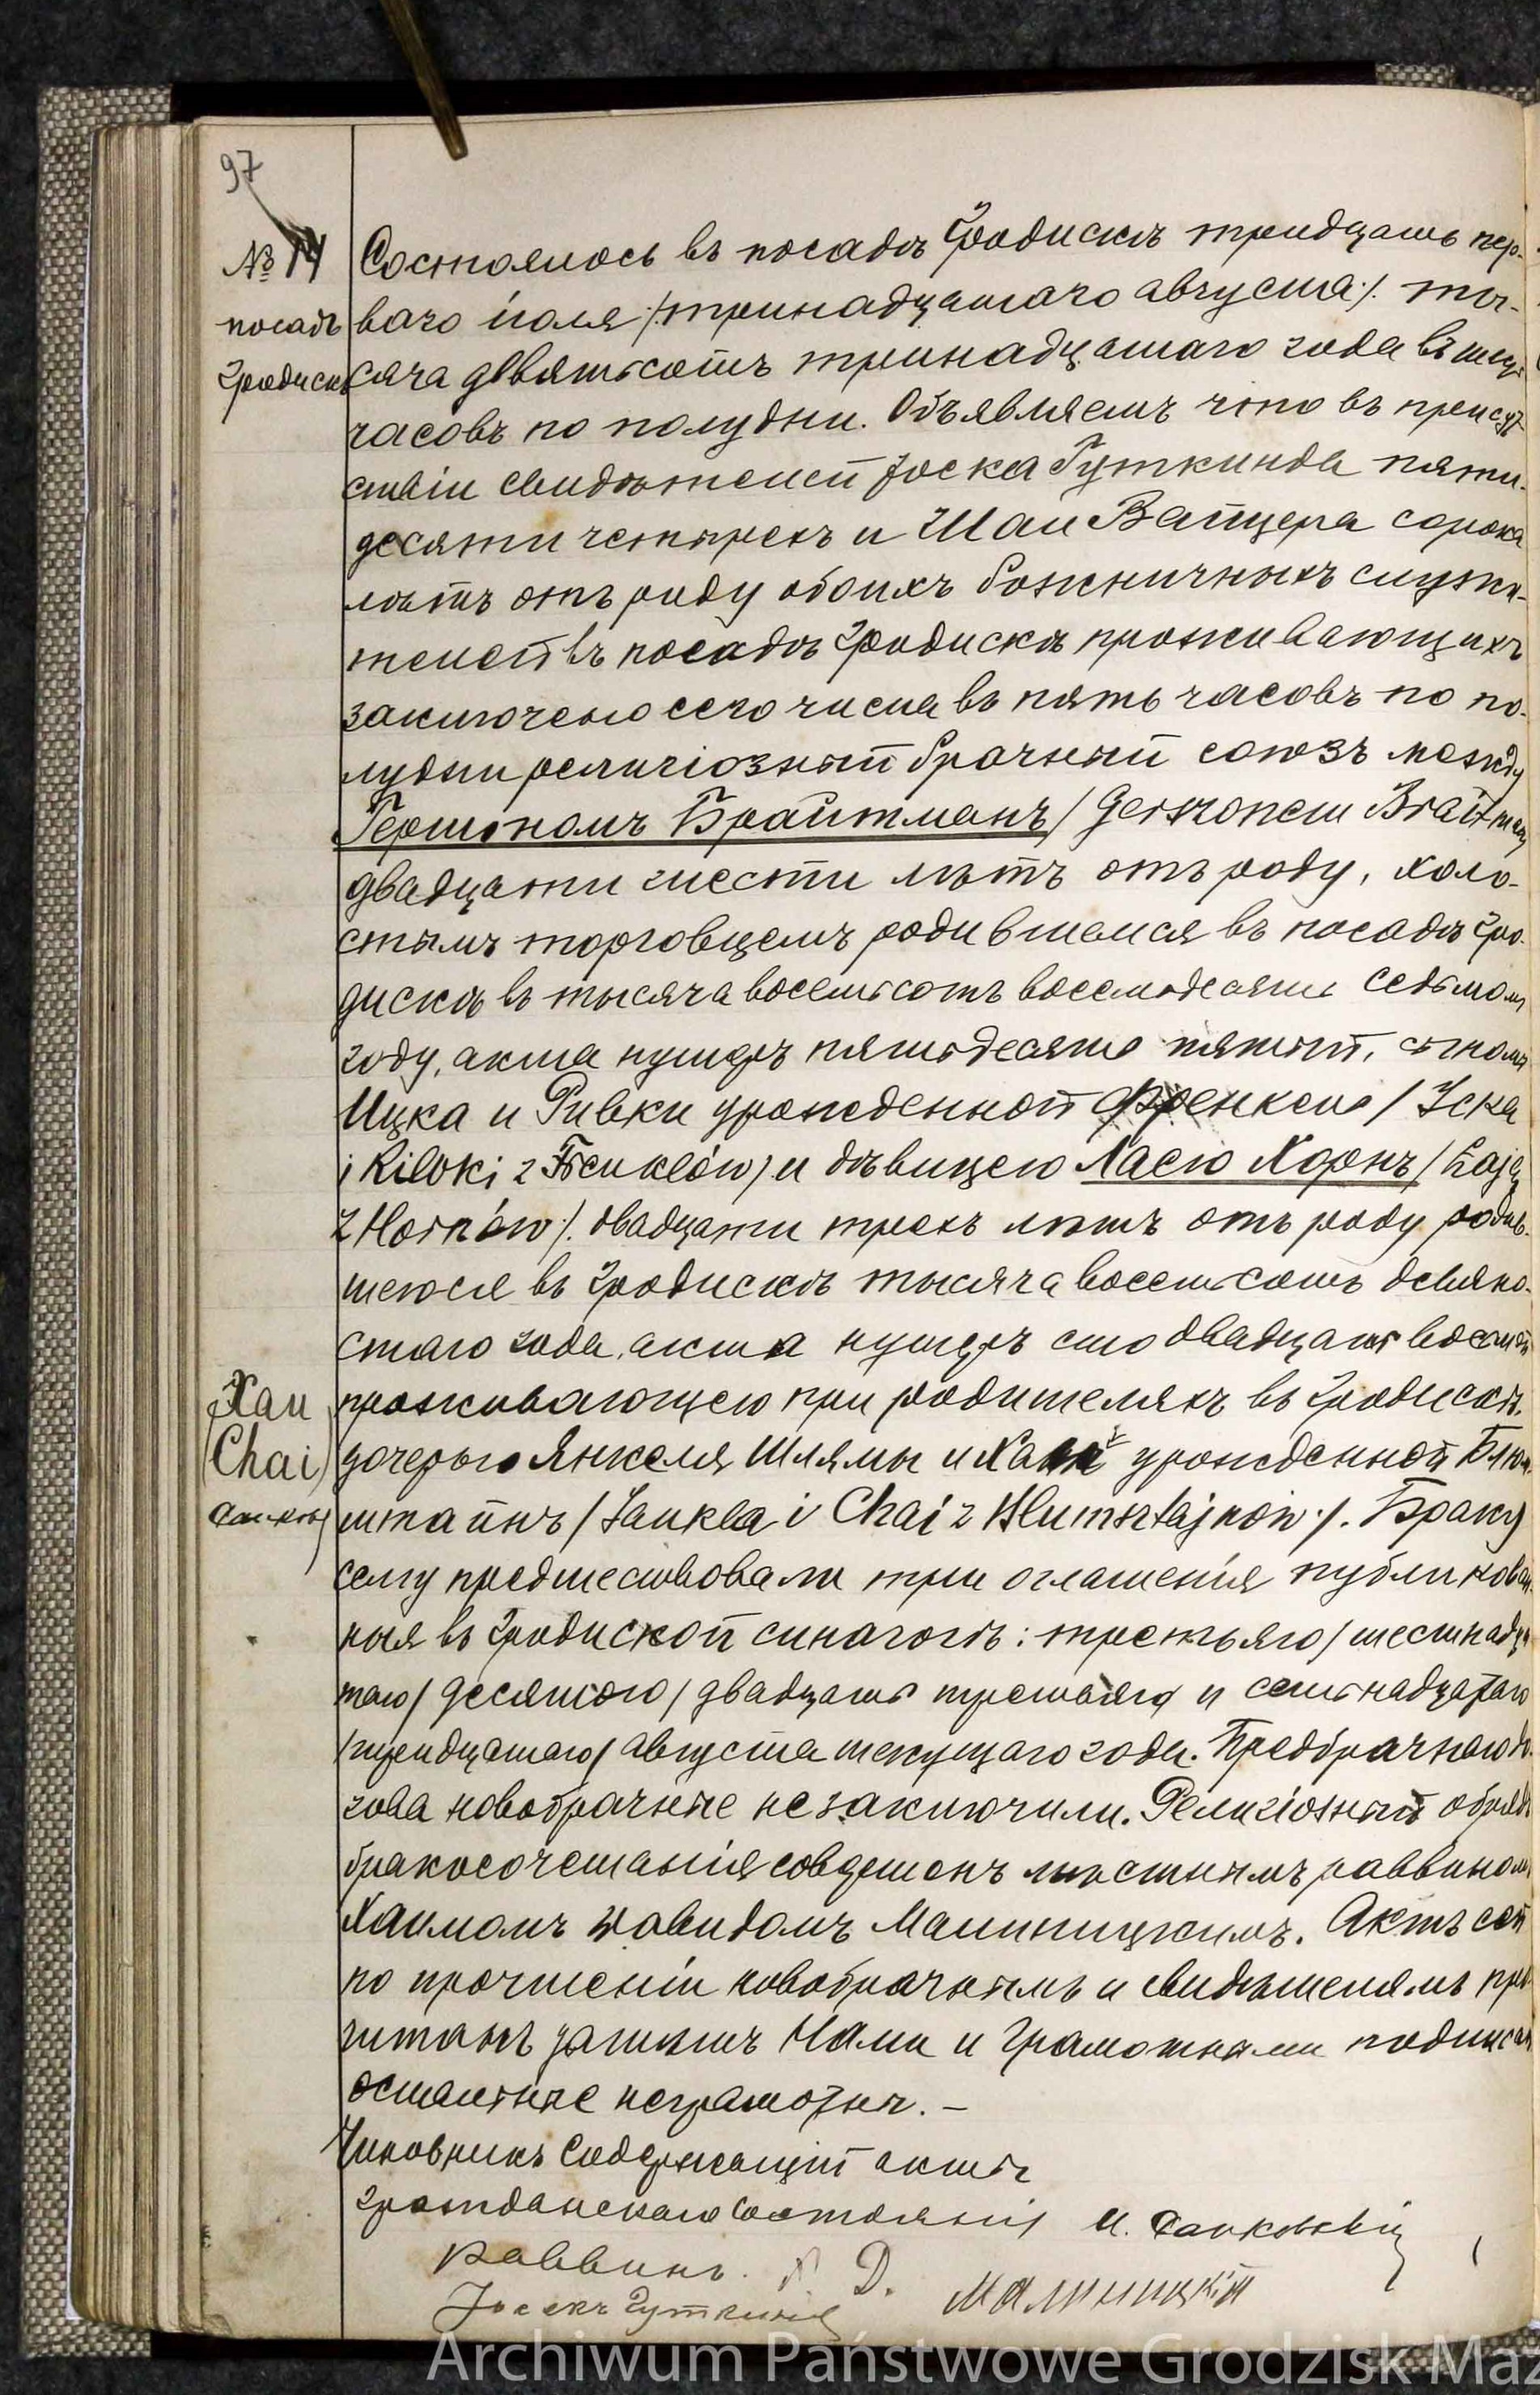 97
№ 14
посадъ
Гродискъ
Состоялось въ посадѣ Гродискѣ тридцать пер-
ваго іюля /:тринадцатаго августа:/ ты-
сяча девятьсотъ тринадцатаго года въ
часовъ по полудни. Объявляемъ что въ присут-
ствіи свидѣтелей Іоска Гуткинда пяти-
десяти четырехъ и Шаи Вайцера сорока
лѣтъ отъ роду обоихъ божничныхъ служи-
телей въ посадѣ Гродискѣ проживающихъ
заключено сего числа въ пять часовъ по по-
лудни религіозный брачный союзъ между
Гершономъ Брайтманъ / Gerszonem Brajtman
двадцати шести лѣтъ отъ роду, холо-
стымъ торговцемъ родившемся въ посадѣ Гро-
дискѣ въ тысяча восемьсотъ восемьдесятъ седьмомъ
году, акта нумеръ пятьдесятъ пятый, сыномъ
Ицка и Ривки урожденной Френкель / Icka
i Riwki z Frenklów / и дѣвицею Лаею Хорнъ / Łają
z Hornów /. двадцати трехъ лѣтъ отъ роду родив-
шеюся въ Гродискѣ тысяча восемьсотъ девяно-
стаго года, акта нумеръ сто двадцать восьмой
проживающею при родителяхъ въ Гродискѣ.
Хаи
(Chai)
дочерью Янкеля Шлямы и урожденной Блюм-
штайнъ / Jankla i Chai z Blumsztajnów /. Браку
сему предшествовали три оглашенія публикован-
ныя въ Гродиской синагогѣ: третьяго / шестнадца-
таго / десятого / двадцать третьяго и семнадцатаго
/ тридцатаго / августа текущаго года. Предбрачнаго до-
говa новобрачные не заключили. Религіозный обрядъ
бракосочетанія совершенъ мѣстнымъ раввиномъ
Хаимомъ Давидомъ Малиницкимъ. Актъ сей
по прочтеніи новобрачнымъ и свидѣтелямъ про-
читанъ Нами и грамотными подписанъ
остальные неграмотны. –
Чиновникъ Содержащій акты
гражданскаго Состоянія И. Санковскій
Раввинъ. Х. Д. Малиницкій
Іосекъ Гуткиндъ
Archiwum Państwowe Grodzisk Maz